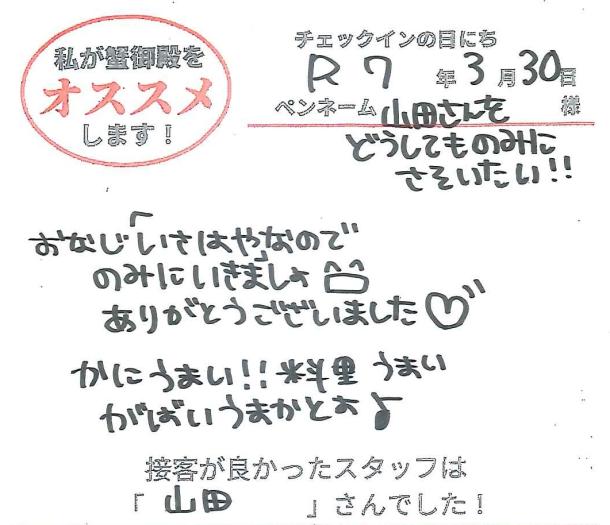 私が蟹御殿を
オススメ
します！
チェックインの日にち
R7年3月30日
ペンネーム 山田さんを 様
どうしてものみに
さそいたい!!
おなじ「いさはやなので
のみにいきましょ
ありがとうございました♡
かにうまい!! 料里 うまい
がばいうまかとお♪
接客が良かったスタッフは
「 山田 」さんでした！